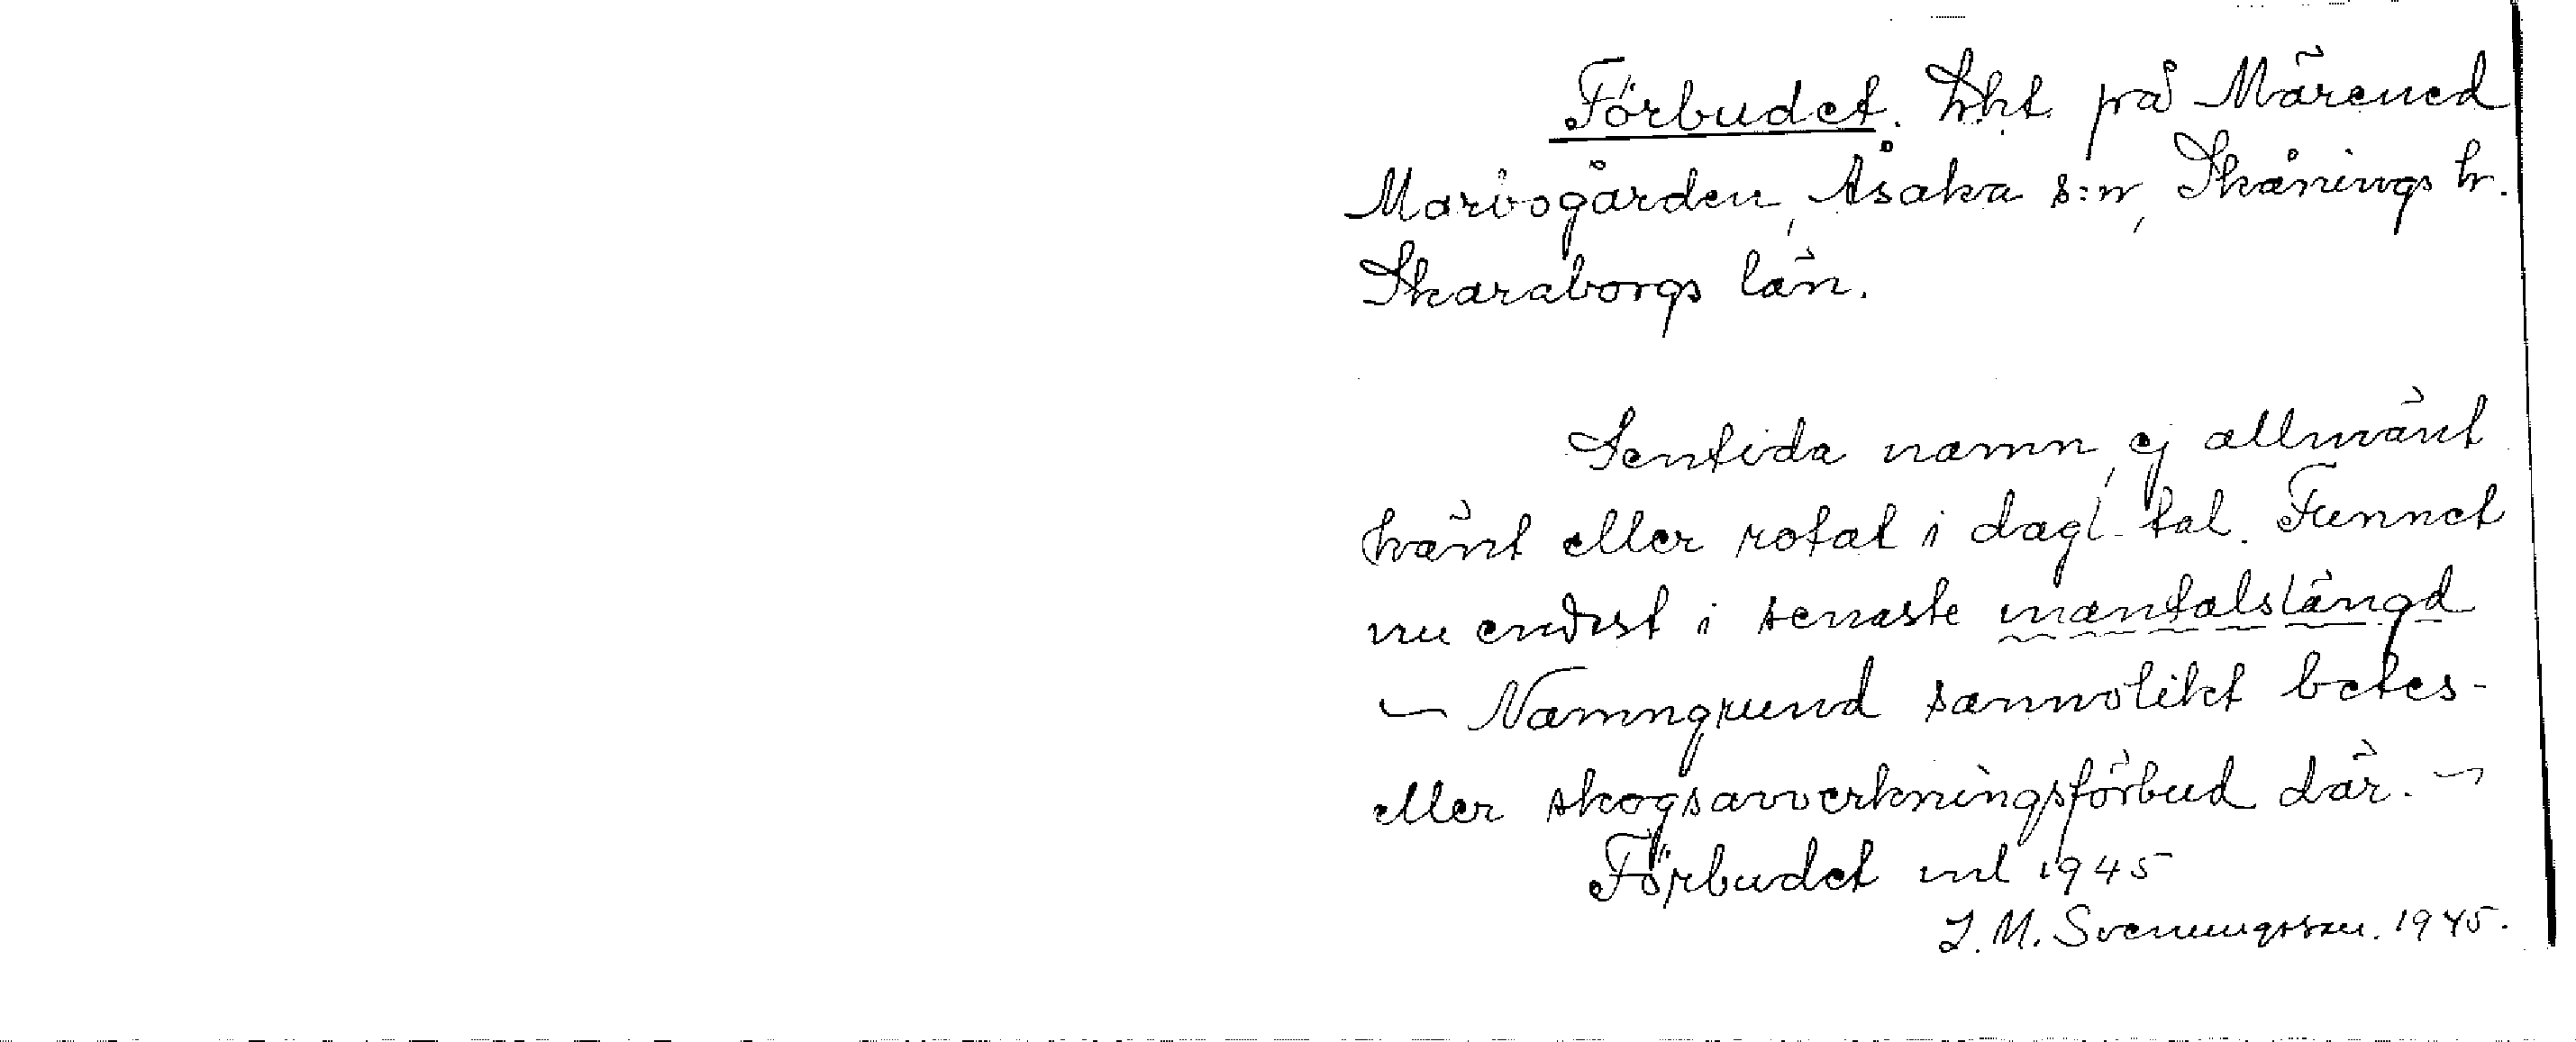 Förbudet. Lht. på Märened
Mariogården, Åsaka s:n, Skånings h.
Skaraborgs län.
Sentida namn, ej allmänt
känt eller rotat i dagl. tal. Funnet
nu endast i senaste mantalslängd
— Namngrund sannolikt betes-
eller skogsavverkningsförbud där. —
Förbudet ml 1945
J. M. Svenungsson. 1945.